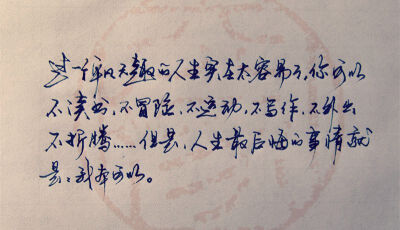 过一个平凡无趣的人生实在太容易了，你可以
不读书，不冒险，不运动，不写作，不外出
不折腾……但是，人生最后悔的事情就
是：我本可以。